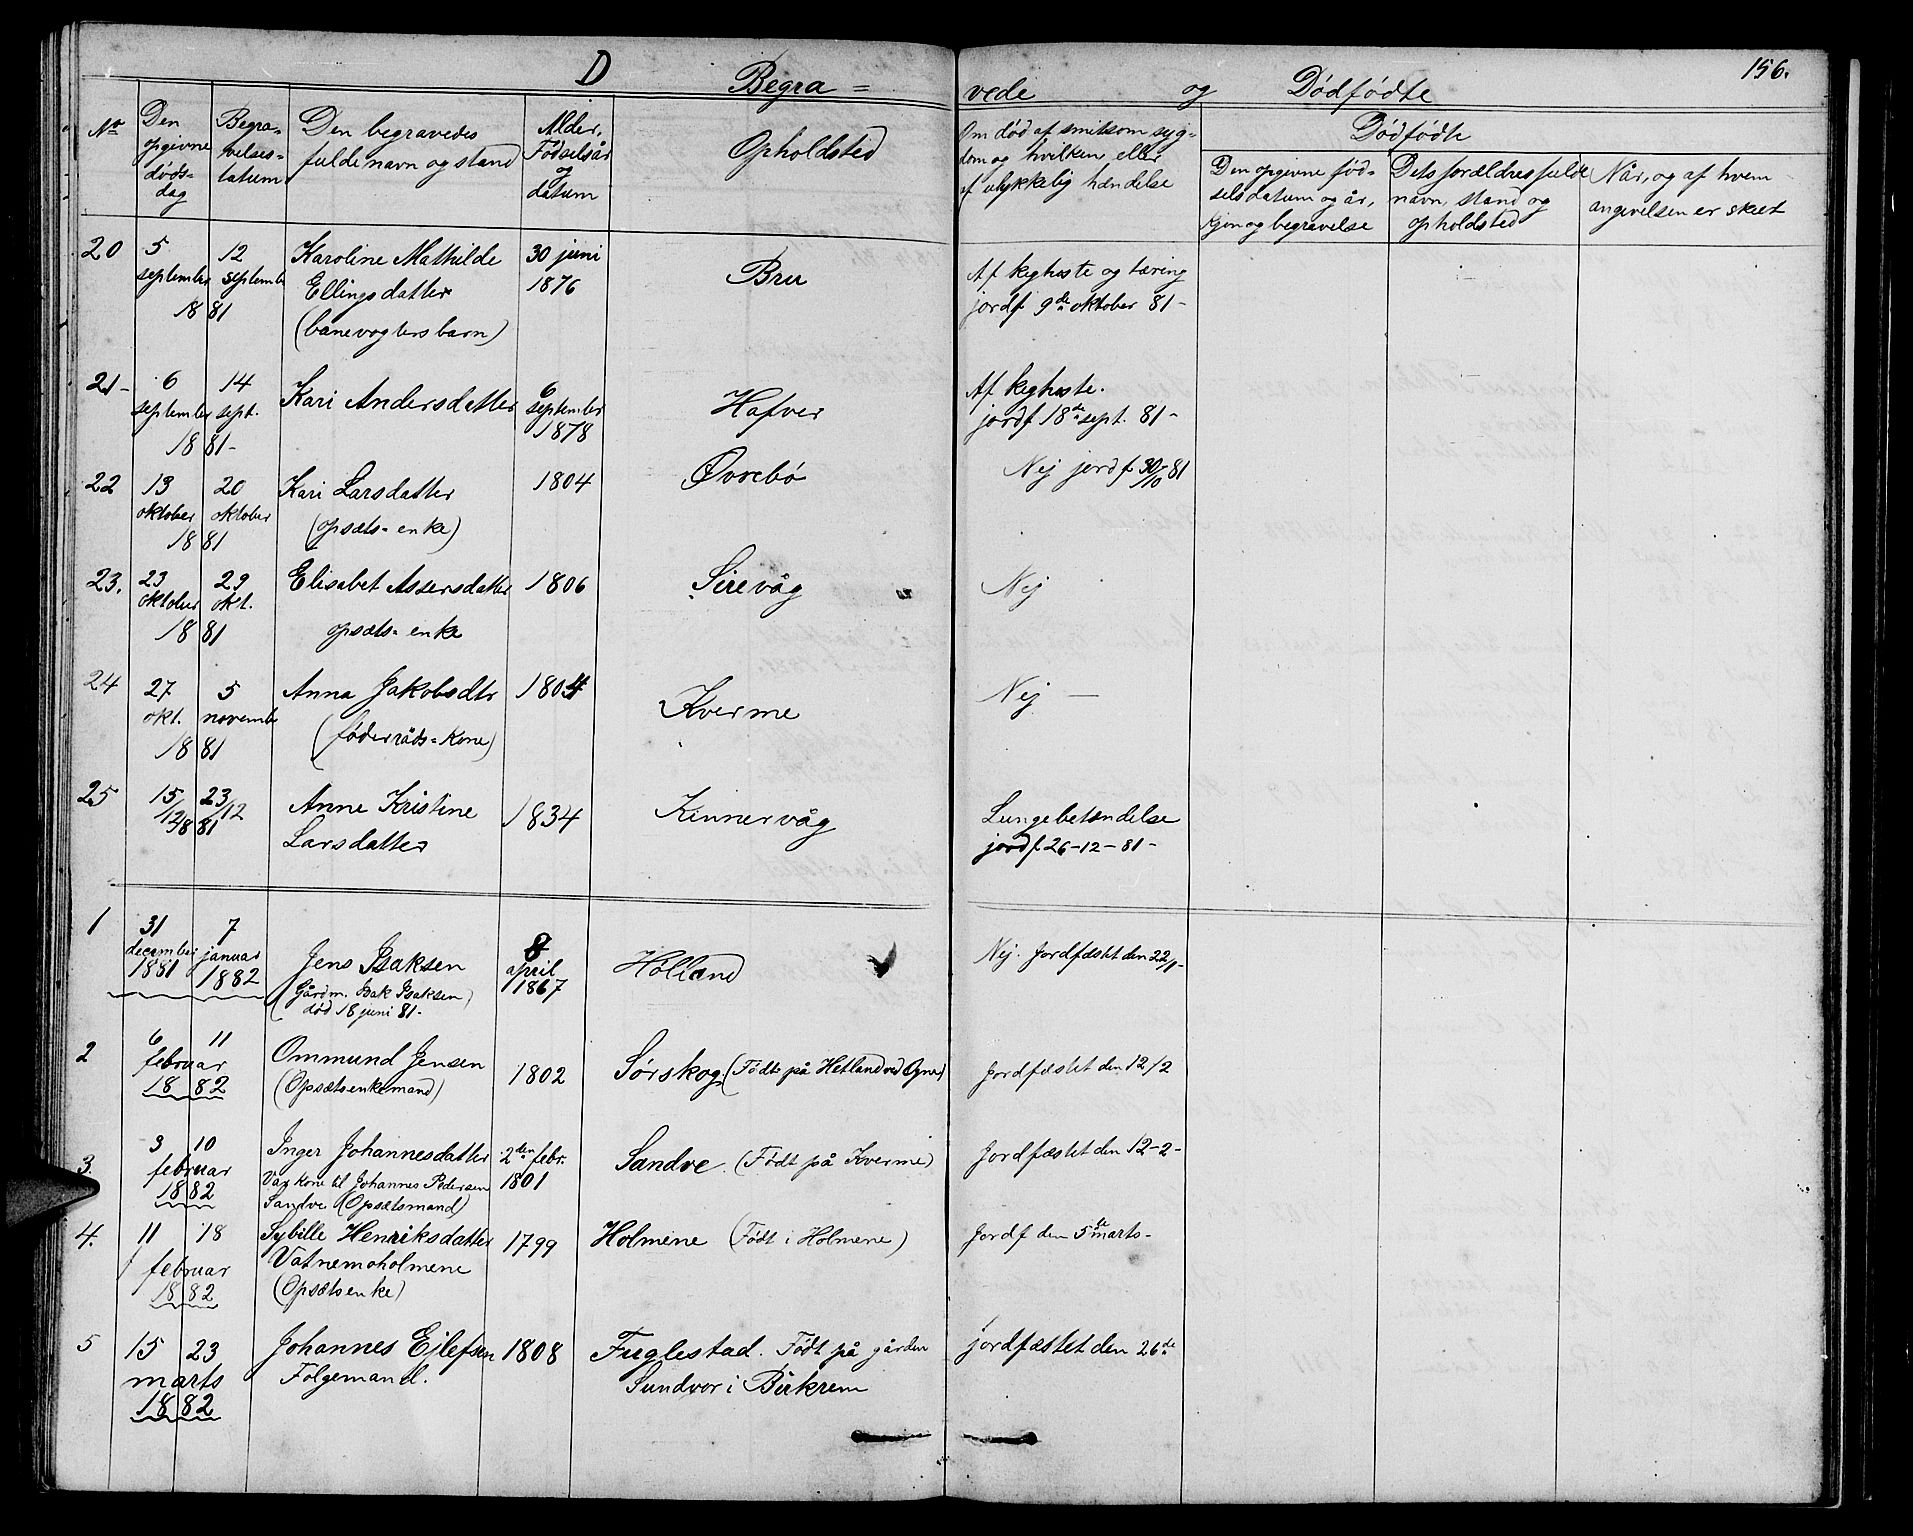 D
Begra= vede og Dødfødte
156.
No
Den opgivne døds= dag
Begra= velses= datum
Den begravedes fulde navn og stand
Alder, Fødselsår og datum
Opholdsted
Om død af smitsom syg= dom og hvilken, eller af ulykkelig hændelse
Dødfødte
Den opgivne fød= selsdatum og år, kjøn og begravelse
Dets forældres fulde navn, stand og opholdsted
Når, og af hvem angivelsen er skeet
20 5 12 Karoline Mathilde 30 juni
september september Ellingsdatter 1876 Bru Af kighoste og tæring
18 81 (banevogters barn) jordf. 9de oktober 81-
21- 6 14 Kari Andersdatter 6 Hafver Af kighoste.
september sept. september jordf 18de sept. 81-
18 81- 1878
22 13 20 Kari Larsdatter 1804 Øvrebø Nej jordf. 30/10 81
oktober oktober (opsæts=enke)
18 81
23. 23 29 Elisabet Assersdatter 1806 Sirevåg Nej
oktober okt. opsæts=enke
18 81
24 27 5 Anna Jakobsdtr 1804 Kverme Nej —
okt. novembr (føderråds=Kone)
18 81
25 15/12 23/12 Anne Kristine 1834 Kinnervåg Lungebetændelse
18 81 Larsdatter jordf. 26-12-81-
1 31 7 8
december januar Jens Isaksen april Hølland Nej. Jordfæstet den 22/1-
1881 1882 (Gårdm. Isak Isaksen) 1867
død 18 juni 81-
2 6 11 Ommund Jensen 1802 Sørskog (Født på Hetland ved Ogne) Jordfæstet den 12/2
februar (Opsætsenkemand)
18 82
3. 3 10 Inger Johannesdatter 2den febr. Sandve. (Født på Kverme) Jordfæstet den 12-2-
februar Var kone til Johannes Pedersen 1801
18 82 Sandve (Opsætsmand)
4. 11 18 Sybille Henriksdatter 1799 Holmene (Født i Holmene) Jordf den 5te marts-
februar Vatnemoholmene
18 82 (Opsætsenke)
5 15 23 Johannes Eilefsen 1808 Fuglestad. Født på gården jordfæstet den 26de
marts Folgemand. Sundvor i Birkrem
18 82